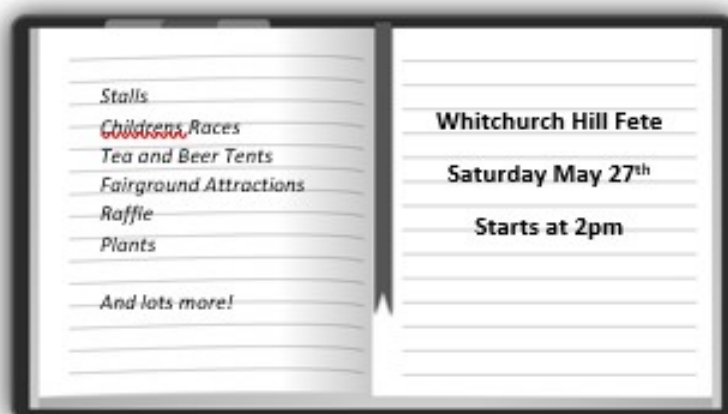 Stalls
Childrens Races
Tea and Beer Tents
Fairground Attractions
Raffle
Plants
And lots more!
Whitchurch Hill Fete
Saturday May 27th
Starts at 2pm